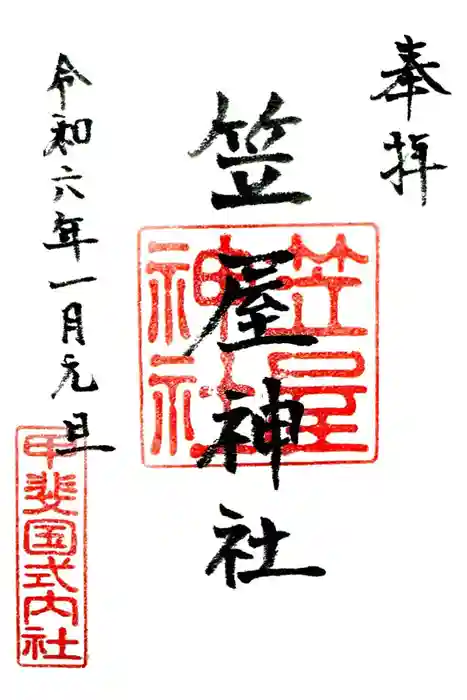 奉拝
笠屋神社
笠屋神社
令和六年一月元旦
甲斐国式内社